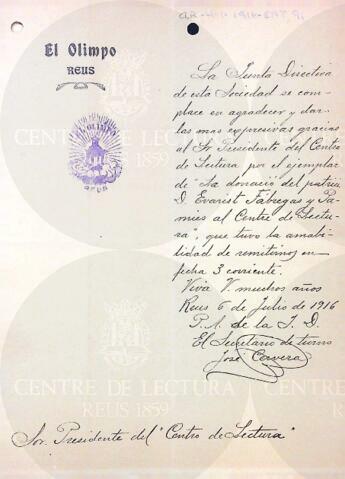 AR-HIS-1916-ENT, 91
El Olimpo
REUS
EL OLIMPO
REUS
La Junta Directiva
de esta Sociedad se com-
place en agradecer y dar
las mas expresivas gracias
al Sr Presidente del Centro
de Lectura por el ejemplar
de "La donació del patrici
D. Evarist Fàbregas y Pa-
mies al Centre de Lectu-
ra", que tuvo la amabi-
lidad de remitirnos en
fecha 3 corriente.
Viva V. muchos años
Reus 6 de Julio de 1916
P. A. de la J. D.
El Secretario de turno
José Cervera
Sor. Presidente del "Centro de Lectura"
CENTRE DE LECTURA
REUS 1859
CENTRE DE LECTURA
REUS 1859